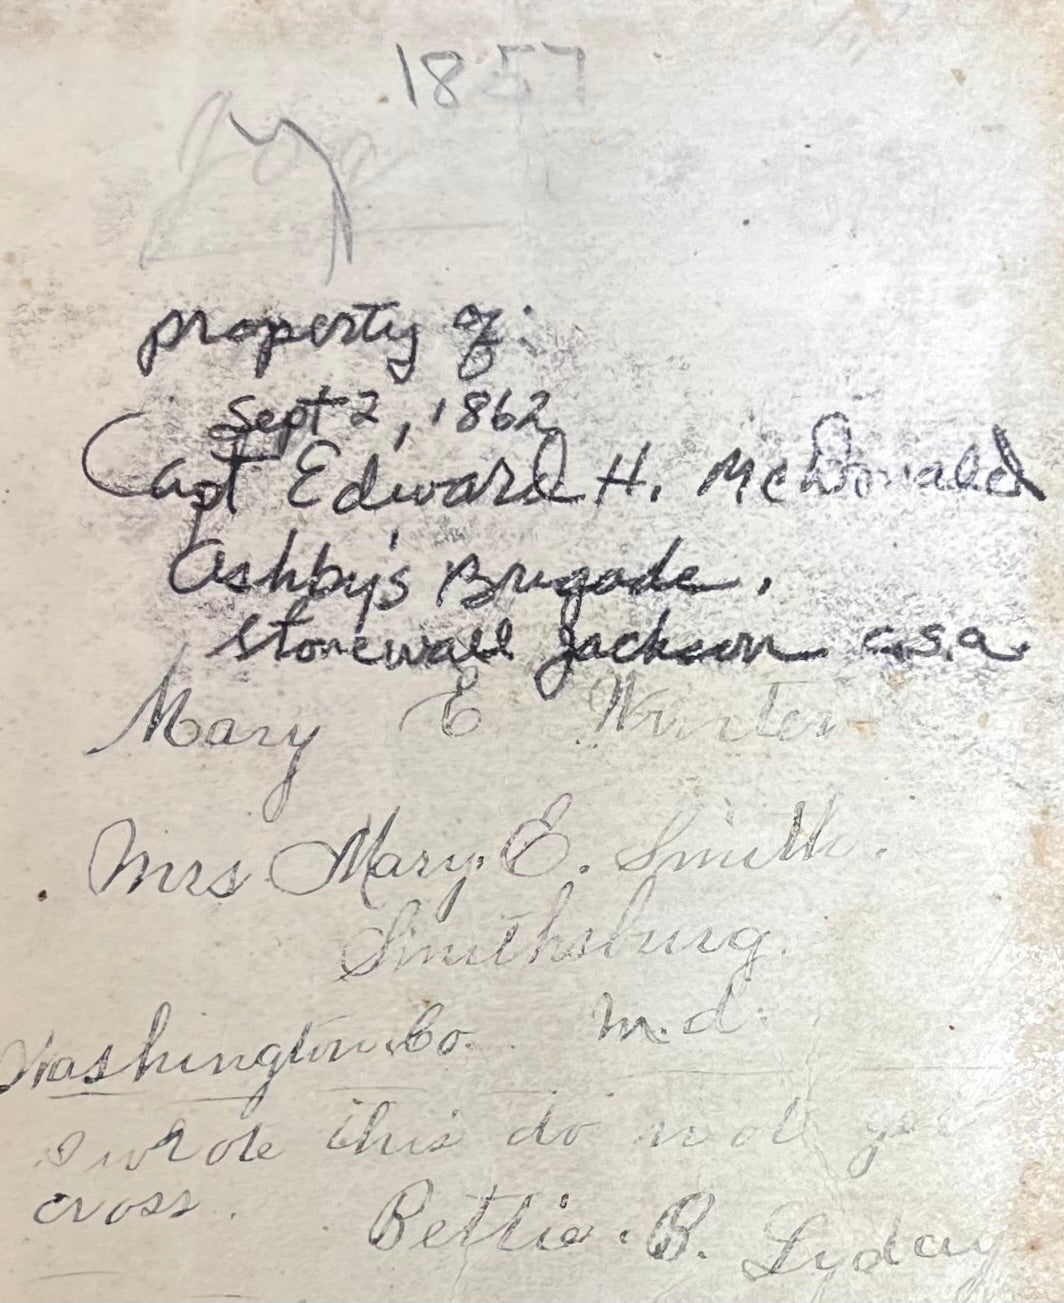 1857
property of:
Sept 2, 1862
Capt Edward H. McDonald
Ashby's Brigade,
Stonewall Jackson C.S.A.
Mary E
Mrs Mary E. Smith.
Smithsburg.
Washington Co. M.d.
I wrote this do not get
cross. Bettie. B. Lyday